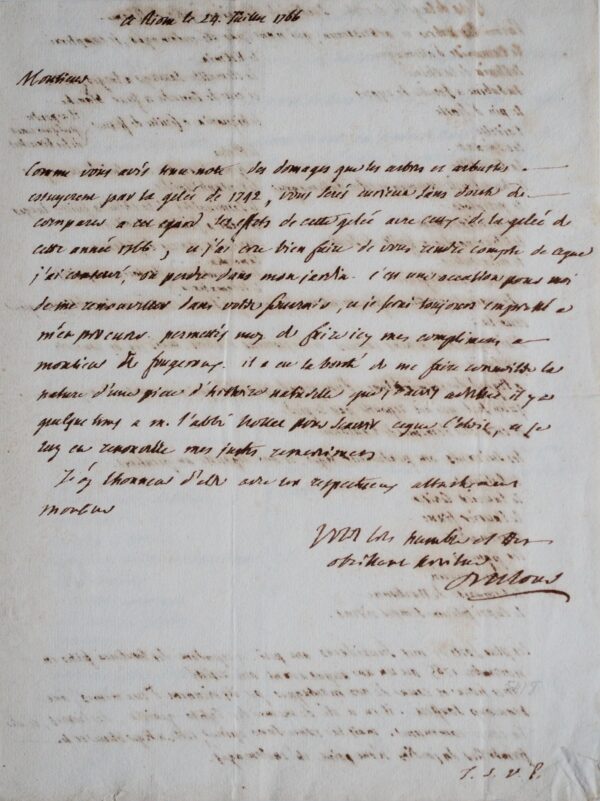 A Riom le 24 Juillet 1766
Monsieur
Comme vous avés tenu note des domages que les arbres et arbustes
essuyerent par la gelée de 1742, vous serés curieux sans doute de
comparer a cet egard les effets de cette gelée avec ceux de la gelée de
cette année 1766, et j'ai cru bien faire de vous rendre compte de ce que
j'ai conservé, ou perdu dans mon jardin. c'est une occasion pour moi
de me renouveller dans votre souvenir, et je serai toujours empressé a
m'en procurer. permetés moy de faire icy mes complimens a
monsieur de fougeroux. il a eu la bonté de me faire connoitre la
nature d'une piece d'histoire naturelle que j'avois adressé il y a
quelque tems a m. l'abbé nollet pour sçavoir ce que c'etoit, et je
luy en renouvelle mes justes remercimens
J'ay l'honneur d'etre avec un respectueux attachement
monsieur
Votre tres humble et tres
obeissant serviteur
T. S. V. P.